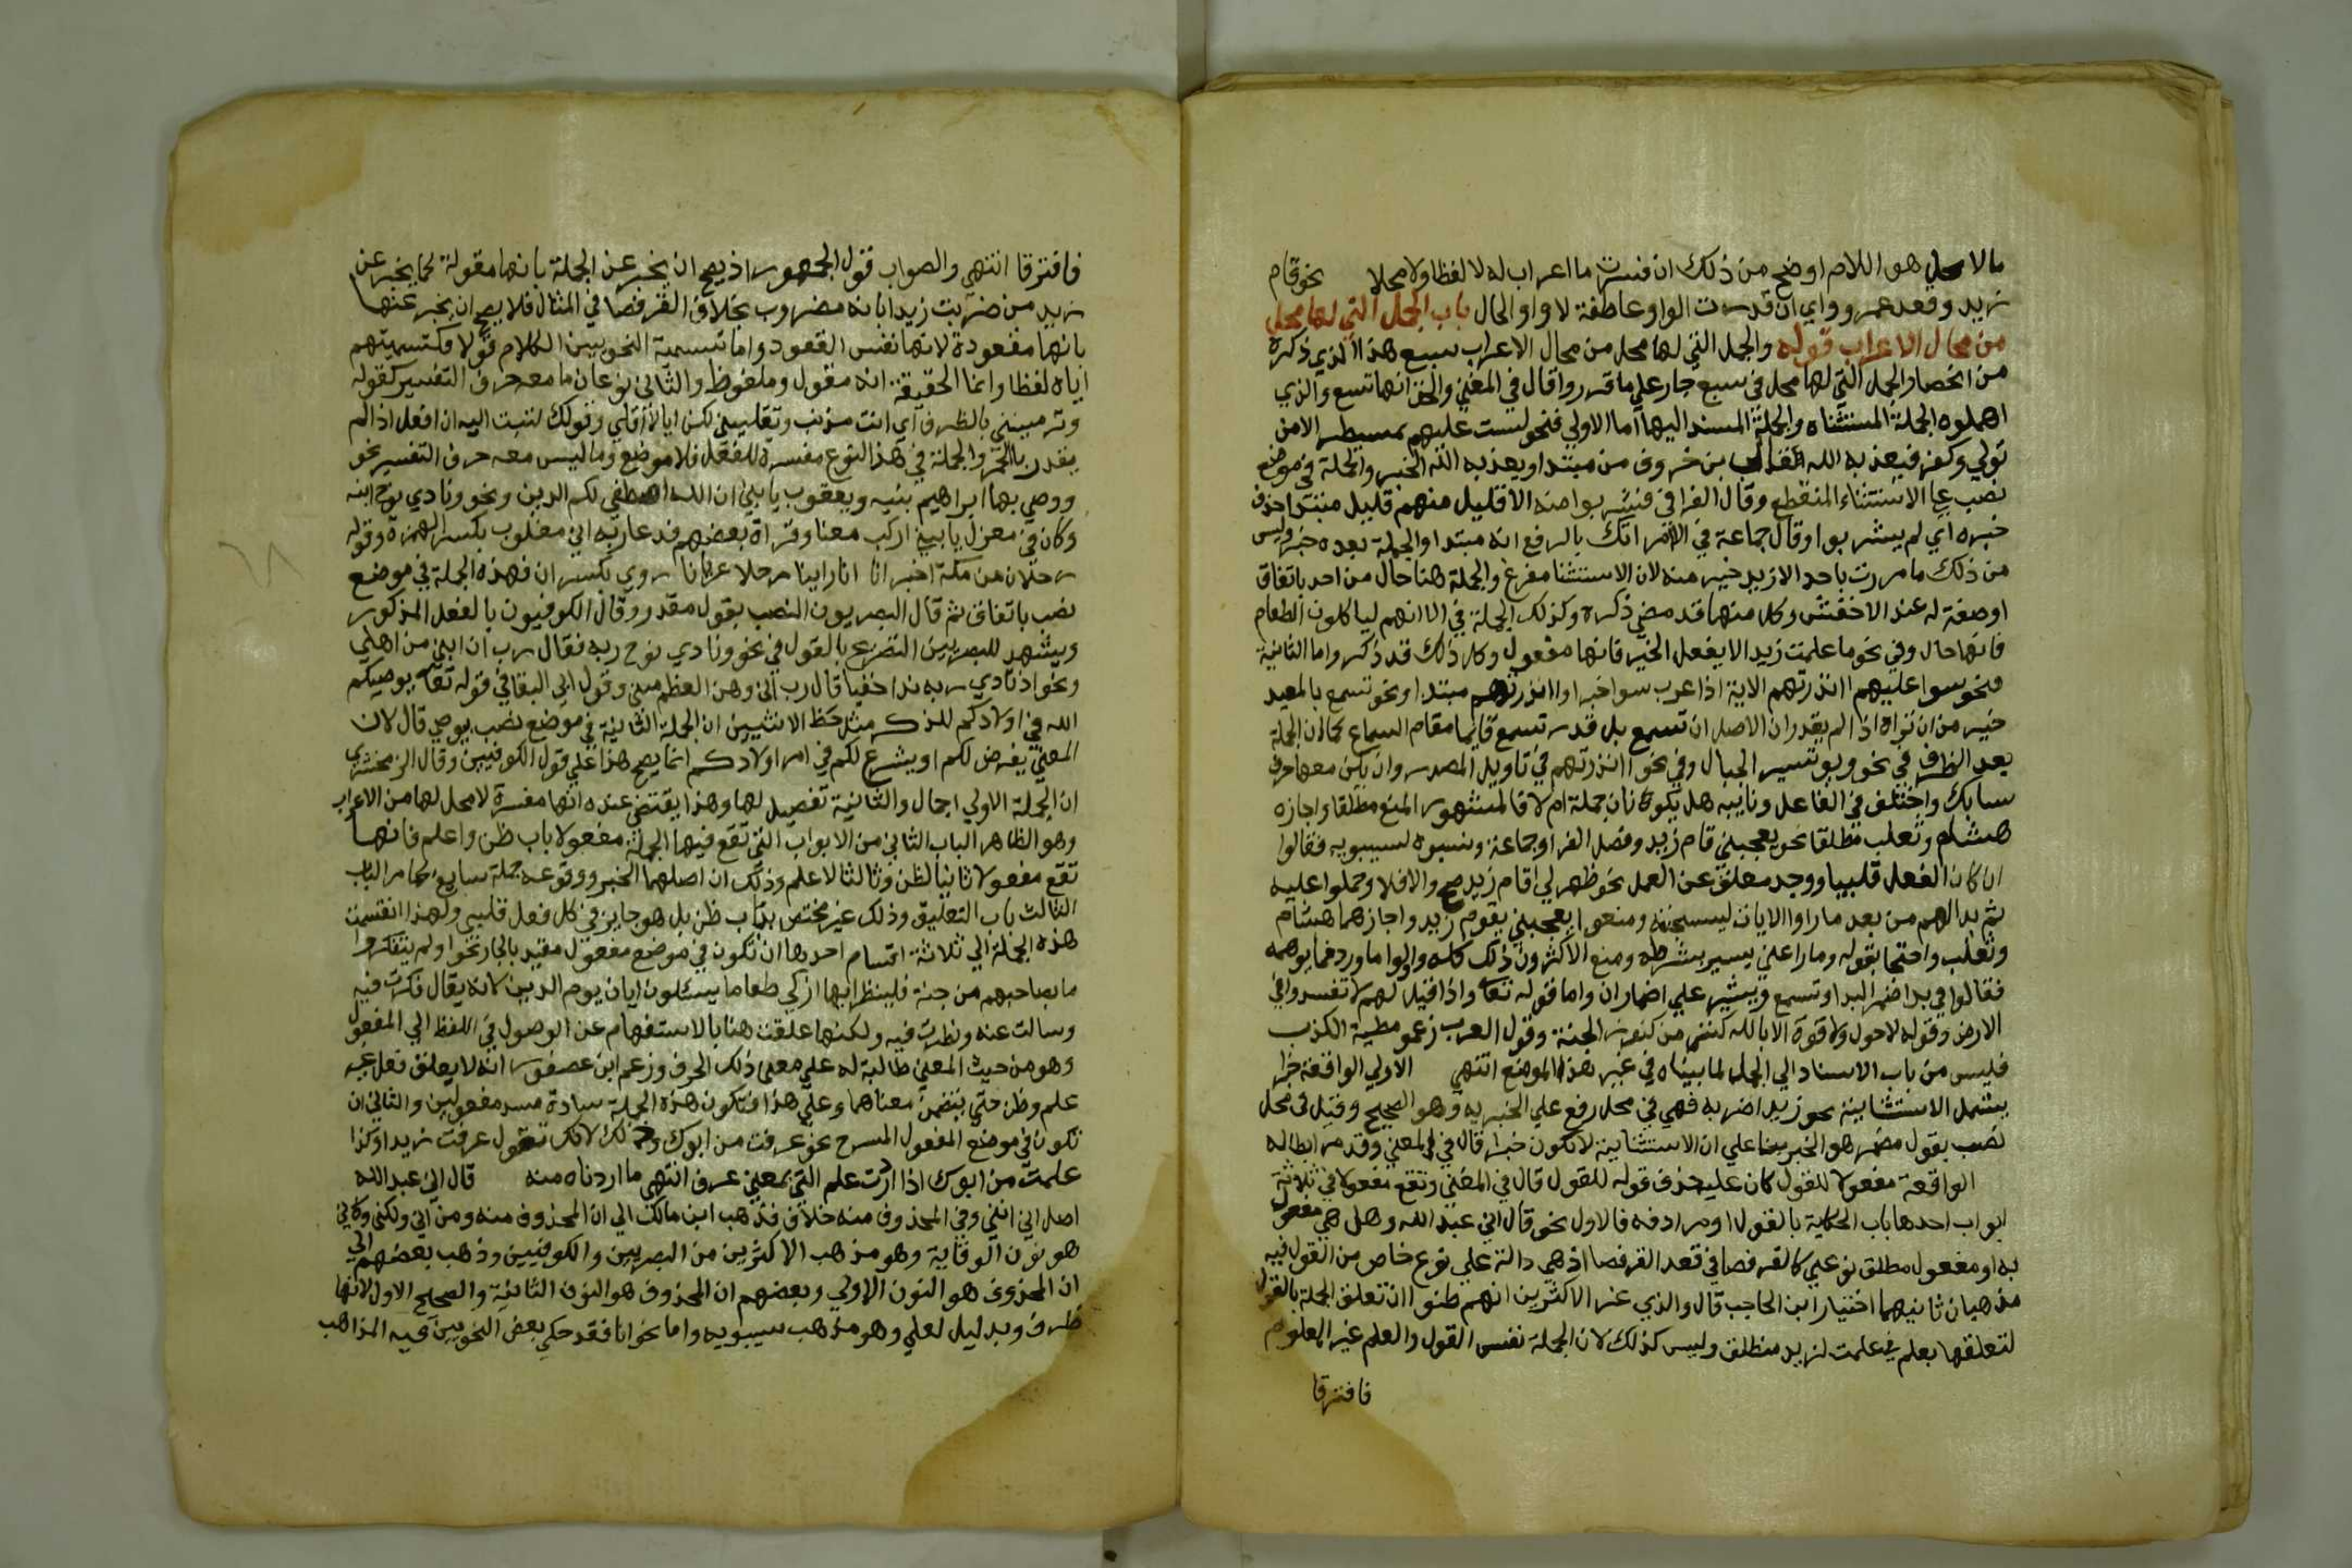 مالا محل هو اللام اوضح من ذلك ان فسرت ما اعراب له لا لفظا ولا محلا نحو قام
زيد وقعد عمرو واي ان قدرت الواو عاطفة لا واو الحال باب الجمل التي لها محل
من محال الاعراب قوله والجمل التي لها محل من محال الاعراب سبع هذا الذي ذكره
من انحصار الجمل التي لها محل في سبع جار علي ما قرروا قال في المغني والحق انها تسع والذي
اهملوه الجملة المستثناه والجملة المسند اليها اما الاولي فنحو لست عليهم بمسيطر الا من
تولي وكفر فيعذبه الله قال ابن خروف من مبتدا ويعذبه الله الخبر والجملة في موضع
نصب علي الاستثناء المنقطع وقال الفرا في فشربوا منه الا قليل منهم قليل مبتدا حذف
خبره اي لم يشربوا وقال جماعة في الا امراتك بالرفع انه مبتدا والجملة بعده خبر وليس
من ذلك ما مررت باحد الا زيد خير منه لان الاستثنا مفرغ والجملة هنا حال من احد باتفاق
اوصفة له عند الاخفش وكل منهما قد مضي ذكره وكذلك الجملة في الا انهم لياكلون الطعام
فانها حال وفي نحو ما علمت زيد الا يفعل الخير فانها مفعول وكل ذلك قد ذكر واما الثانية
فنحو سوا عليهم اانذرتهم الاية اذا عرب سوا خبرا واانذرتهم مبتدا ونحو تسمع بالمعيد
خير من ان تراه اذا لم يقدر ان الاصل ان تسمع بل قدر تسمع قايما مقام السماع كما ان الجملة
بعد الظرف في نحو ويوم نسير الجبال وفي نحو اانذرتهم في تاويل المصدر وان لم يكن معها حرف
سابك واختلف في الفاعل ونايبه هل يكونان جملة ام لا فالمشهور المنع مطلقا واجازه
هشام وثعلب مطلقا نحو يعجبني قام زيد وفصل الفرا وجماعة ونسبوه لسيبويه فقالوا
ان كان الفعل قلبيا ووجد معلق عن العمل نحو ظهر لي اقام زيد صح والا فلا وحملوا عليه
ثم بدا لهم من بعد ما راوا الايات ليسجننه ومنعوا يعجبني يقوم زيد واجازهما هشام
وثعلب واحتجا بقوله وما راعني يسير بشرطه ومنع الاكثرون ذلك كله واولوا ما ورد مما يوهمه
فقالوا في بدا ضمير البدا وتسمع ويسير علي اضمار ان واما قوله تعا واذا قيل لهم لا تفسدوا في
الارض وقوله لا حول ولا قوة الا بالله كنز من كنوز الجنة وقول العرب زعموا مطية الكذب
فليس من باب الاسناد الي الجملة لما بيناه في غير هذا الموضع انتهي الاولي الواقعة خبرا
يشمل الاستثنائية نحو زيد اضربه فهي في محل رفع علي الخبرية وهو الصحيح وقيل في محل
نصب بقول مضمر هو الخبر بنا علي ان الاستثنائية لا تكون خبرا قال في المغني وقد مر ابطاله
الواقعة مفعولا للقول كان عليه حذف قوله للقول قال في المغني وتقع مفعولا في ثلاثة
ابواب احدها باب الحكاية بالقول او مرادفه فالاول نحو قال اني عبد الله وهل هي مفعول
به او مفعول مطلق نوعي كالقرفصا في قعد القرفصا اذ هي دالة علي نوع خاص من القول فيه
مذهبان ثانيهما اختيار ابن الحاجب قال والذي غر الاكثرين انهم ظنوا ان تعلق الجملة بالقول
لتعلقها بعلم في علمت لزيد منطلق وليس كذلك لان الجملة نفس القول والعلم غير المعلوم
فافترقا
فافترقا انتهي والصواب قول الجمهور اذ يصح ان يخبر عن الجملة بانها مقولة كما يخبر عن
زيد من ضربت زيدا بانه مضروب بخلاف القرفصا في المثال فلا يصح ان يخبر عنها
بانها مقعودة لانها نفس القعود واما تسمية النحويين الكلام قولا فكتسميتهم
اياه لفظا وانما الحقيقة انه مقول وملفوظ والثاني نوعان ما معه حرف التفسير كقوله
وترمينني بالظرف اي انت مذنب وتقلينني لكن اياك لا اقلي وقولك كتبت اليه ان افعل اذا لم
يقدر بالجر والجملة في هذا النوع مفسرة للفعل فلا موضع وما ليس معه حرف التفسير نحو
ووصي بها ابراهيم بنيه ويعقوب يا بني ان الله اصطفي لكم الدين ونحو ونادي نوح ابنه
وكان في معزل يا بني اركب معنا وقراة بعضهم فدعا ربه اني مغلوب بكسر الهمزة وقوله
رجلان من مكة اخبرانا انا راينا رجلا عريانا روي بكسر ان فهذه الجملة في موضع
نصب باتفاق ثم قال البصريون النصب بقول مقدر وقال الكوفيون بالفعل المذكور
ويشهد للبصريين التصريح بالقول في نحو ونادي نوح ربه فقال رب ان ابني من اهلي
ونحو اذ نادي ربه ندا خفيا قال رب اني وهن العظم مني وقول ابي البقا في قوله تعا يوصيكم
الله في اولادكم للذكر مثل حظ الانثيين ان الجملة الثانية في موضع نصب بيوصي قال لان
المعني يفرض لكم او يشرع لكم في امر اولادكم انما يصح هذا علي قول الكوفيين وقال الزمخشري
ان الجملة الاولي اجمال والثانية تفصيل لها وهذا يقتضي عنده انها مفسرة لا محل لها من الاعراب
وهو الظاهر الباب الثاني من الابواب التي تقع فيها الجملة مفعولا باب ظن واعلم فانها
تقع مفعولا ثانيا لظن وثالثا لاعلم وذلك ان اصلهما الخبر ووقوعه جملة سايغ كما مر الباب
الثالث باب التعليق وذلك غير مختص بباب ظن بل هو جايز في كل فعل قلبي ولهذا انقسمت
هذه الجملة الي ثلاثة اقسام احدها ان تكون في موضع مفعول مقيد بالجار نحو اولم يتفكروا
ما بصاحبهم من جنة فلينظر ايها ازكي طعاما يسئلون ايان يوم الدين لانه يقال فكرت فيه
وسالت عنه ونظرت فيه ولكنها علقت هنا بالاستفهام عن الوصول في اللفظ الي المفعول
وهو من حيث المعني طالبة له علي معني ذلك الحرف وزعم ابن عصفور انه لا يعلق فعل غير
علم وظن حتي يتضمن معناهما وعلي هذا فتكون هذه الجملة سادة مسد مفعولين والثاني ان
تكون في موضع المفعول المسرح نحو عرفت من ابوك وذلك لانك تقول عرفت زيدا وكذا
علمت من ابوك اذا اردت علم التي بمعني عرف انتهي ما اردناه منه قال اني عبد الله
اصل اني انني وفي المحذوف منه خلاف فذهب ابن مالك الي ان المحذوف منه ومن اني ولكني وكاني
هو نون الوقاية وهو مذهب الاكثرين من البصريين والكوفيين وذهب بعضهم الي
ان المحذوف هو النون الاولي وبعضهم ان المحذوف هو النون الثانية والصحيح الاول لانها
طرف وبدليل لعلي وهو مذهب سيبويه واما نحو انا فقد حكي بعض النحويين فيه المذاهب